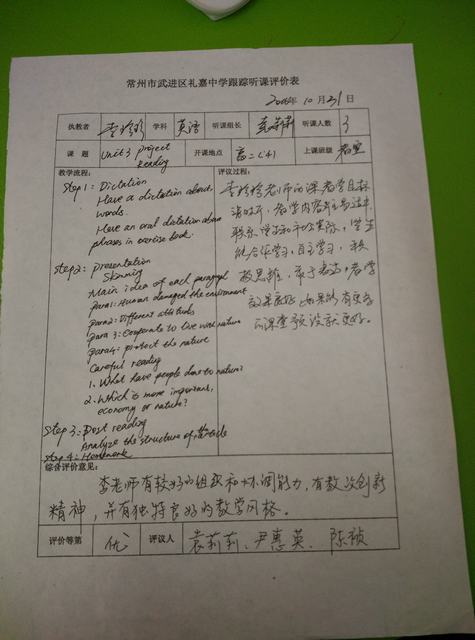 常州市武进区礼嘉中学跟踪听课评价表
10月31日
执教者 李玲珍 学科 英语 听课组长 听课人数 3
课题 Unit 3 project Reading 开课地点 高二(4) 上课班级 教室
教学流程:
Step 1: Dictation
Have a dictation about
words.
Have an oral dictation about
phrases in exercise book.
Step 2: presentation
Skimming
Main idea of each paragraph
Para1: Human damaged the environment
para2: Different attitudes
para 3: Cooperate to live with nature
para4: protect the nature
Careful reading
1. What have people done to nature?
2. Which is more important,
economy or nature?
Step 3: Post reading
Analyze the structure of the article
Step 4: Homework
评议过程:
李玲珍老师的课教学目标
教学内容
联系学生和社会实际,学生
能合作学习,自主学习,积
极思维,敢于表达,教学
效果较好,如果能有更多
的课堂预设就更好。
综合评价意见:
李老师有较好的组织和协调能力,有教改创新
精神,并有独特良好的教学风格。
评价等第 优 评议人 袁莉莉、尹惠英、陈祯